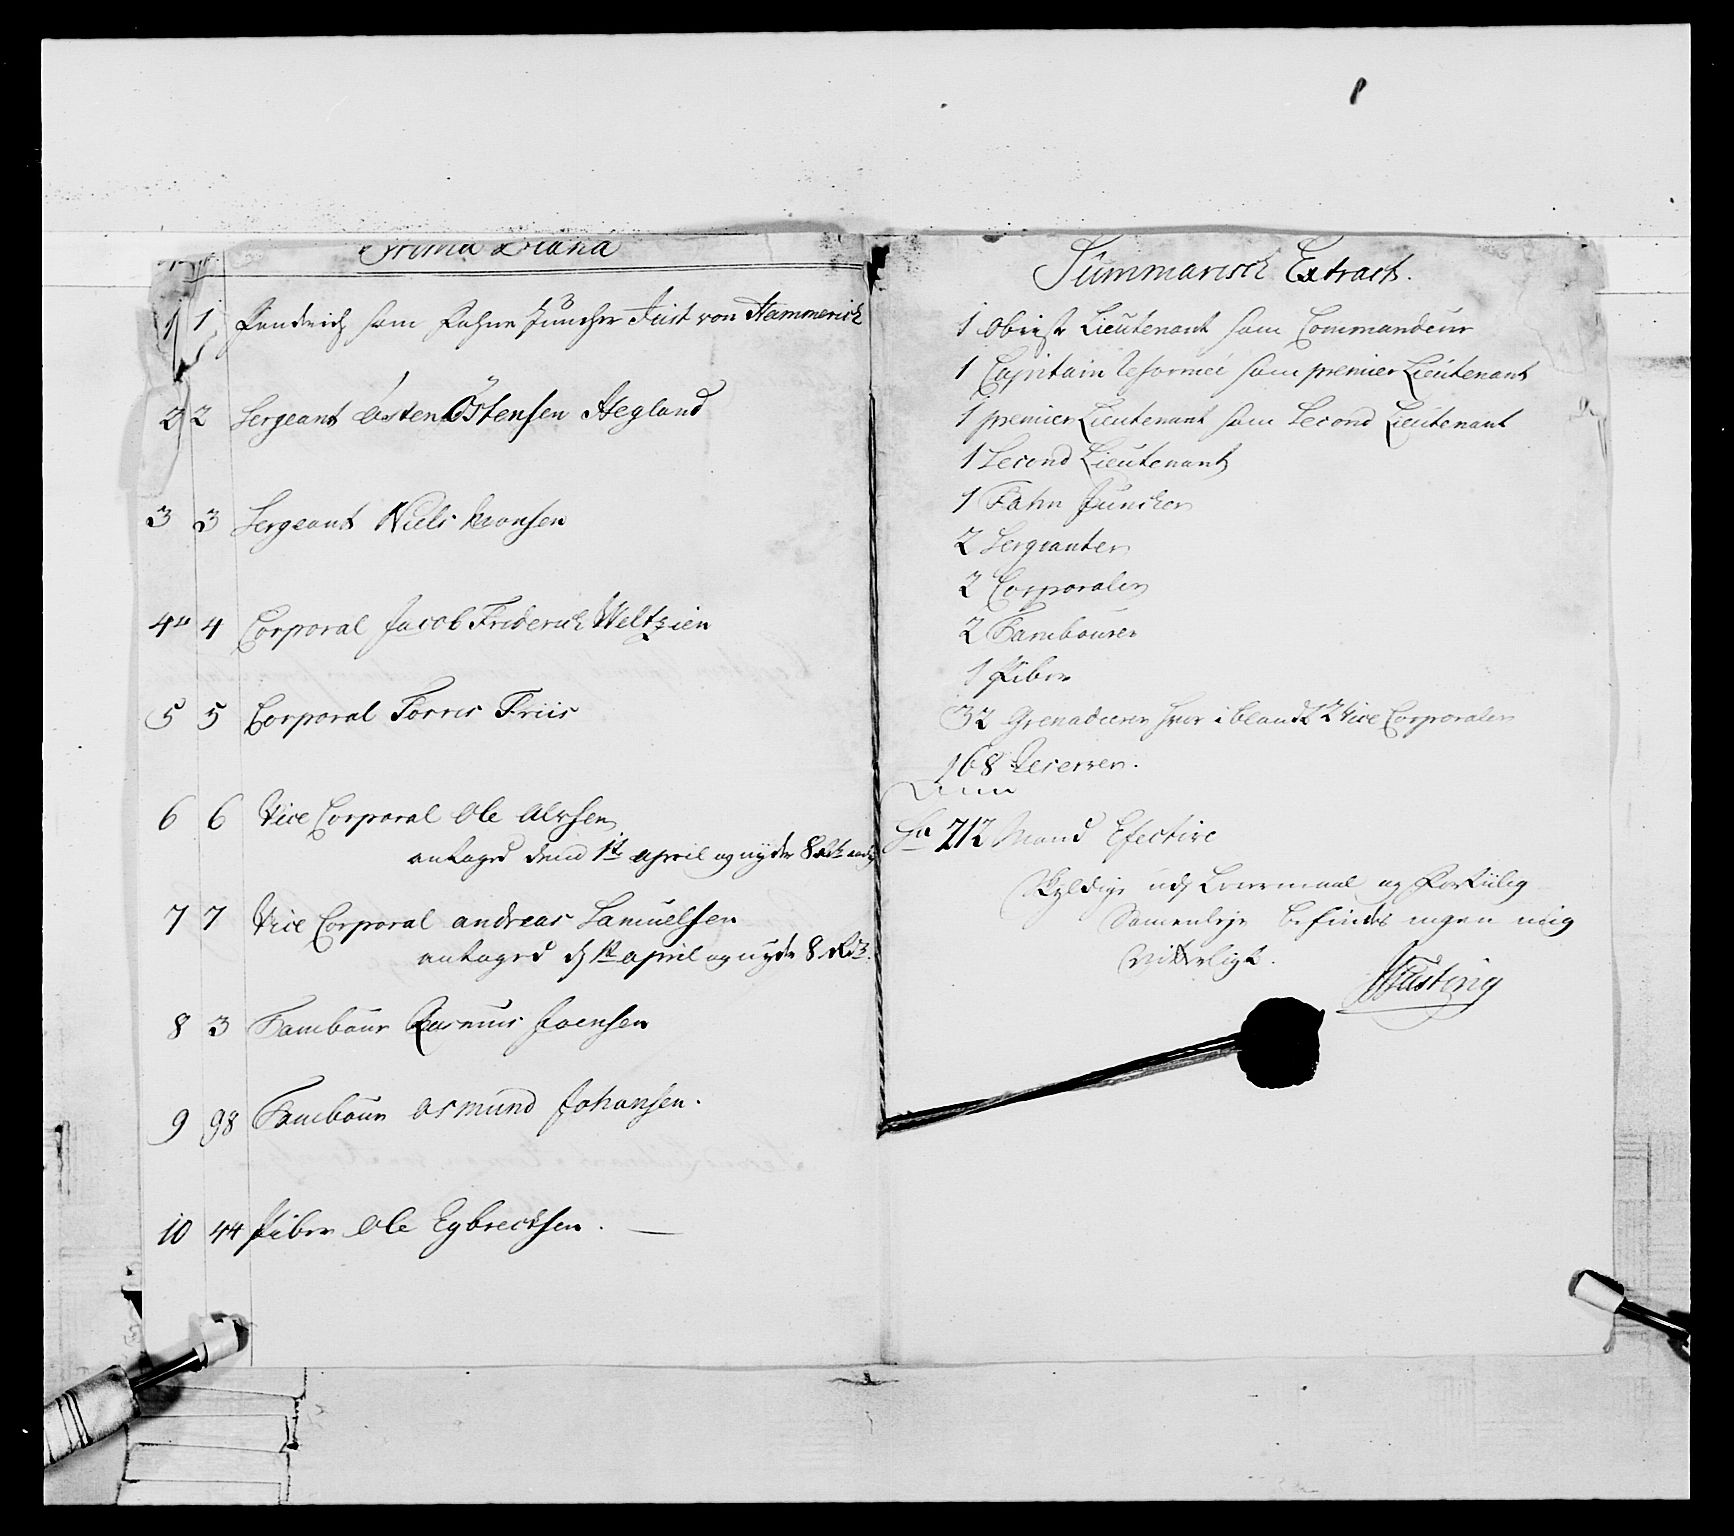 Prima Plana
1 1 Fendrich som Fahne Juncher Just von Hammerich
2 2 Sergeant Østen Østensen Hegland
3 3 Sergeant Niels Aronsen
4 4 Corporal Jacob Friderich Weltzien
5 5 Corporal Torres Friis
6 6 Vice Corporal Ole Alvsen
antaged dend 1ste april og nyder 8 Rd
7 7 Vice Corporal andreas Samuelsen
antaged d 1ste april og nyder 8 Rd
8 3 Tambour Rasmus Joensen
9 98 Tambour Asmund Johansen.
10 44 Piber Ole Egbrectsen. —
Summarisch Extract.
1 Obrist Lieutenant som Commandeur
1 Capitain Reformée som premier Lieutenant
1 premier Lieutenant som Second Lieutenant
1 Second Lieutenant
1 Fahn Juncker
2 Sergeanter
2 Corporaler
2 Tambourer
1 Piber
32 Grenadeerer hvor iblandt 2 Vice Corporaler
168 Reserver.
Sa 212 Mand Efective
Skyldige udj Leiermaal og Fortiilig
Samenleje befindes ingen mig
Vitterligt.
Fasting